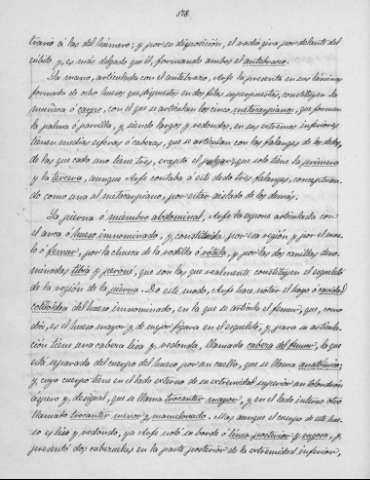 178.
trario á las del húmero; y por su disposición, el radio gira por delante del
cúbito y, es más delgado que él, formando ambos el antebrazo.
La mano, articulada con el antebrazo, Arfe la presenta en sus láminas
formada de ocho huesos que, dispuestos en dos filas superpuestas, constituyen la
muñeca ó carpo, con el que se articulan los cinco metacarpianos, que forman
la palma ó parrilla, y siendo largos y redondos, en sus extremos inferiores
tienen medias esferas ó cabezas, que se articulan con las falanges de los dedos,
de las que cada uno tiene tres, excepto el pulgar que solo tiene la primera
y la tercera, aunque Arfe contaba á este dedo tres falanges, conceptuan-
do como una al metacarpiano, por estar aislado de los demás.
La pierna ó miembro abdominal, Arfe la expone articulada con
el anca ó hueso innominado, y constituida, por esa región, y por el mus-
lo ó femur, por la chueca de la rodilla ó rótula, y por las dos canillas deno-
minadas tibia y peroné, que son las que realmente constituyen el esqueleto
de la región de la pierna. De este modo, Arfe hace notar el hoyo ó cavidad
cotiloidea del hueso innominado, en la que se articula el femur, que, como
dice, es el hueso mayor y de mejor figura en el esqueleto, y para su articula-
ción tiene una cabeza lisa y redonda, llamada cabeza del femur, la que
está separada del cuerpo del hueso por un cuello, que se llama anatómico;
y cuyo cuerpo tiene en el lado externo de su extremidad superior un tolondrón
áspero y desigual, que se llama trocanter mayor, y en el lado interno otro
llamado trocanter menor y mamelonado. Mas aunque el cuerpo de este hue-
so es liso y redondo, ya Arfe notó su borde ó linea posterior y áspera, y
presentó dos cabezuelas en la parte posterior de la extremidad inferior,